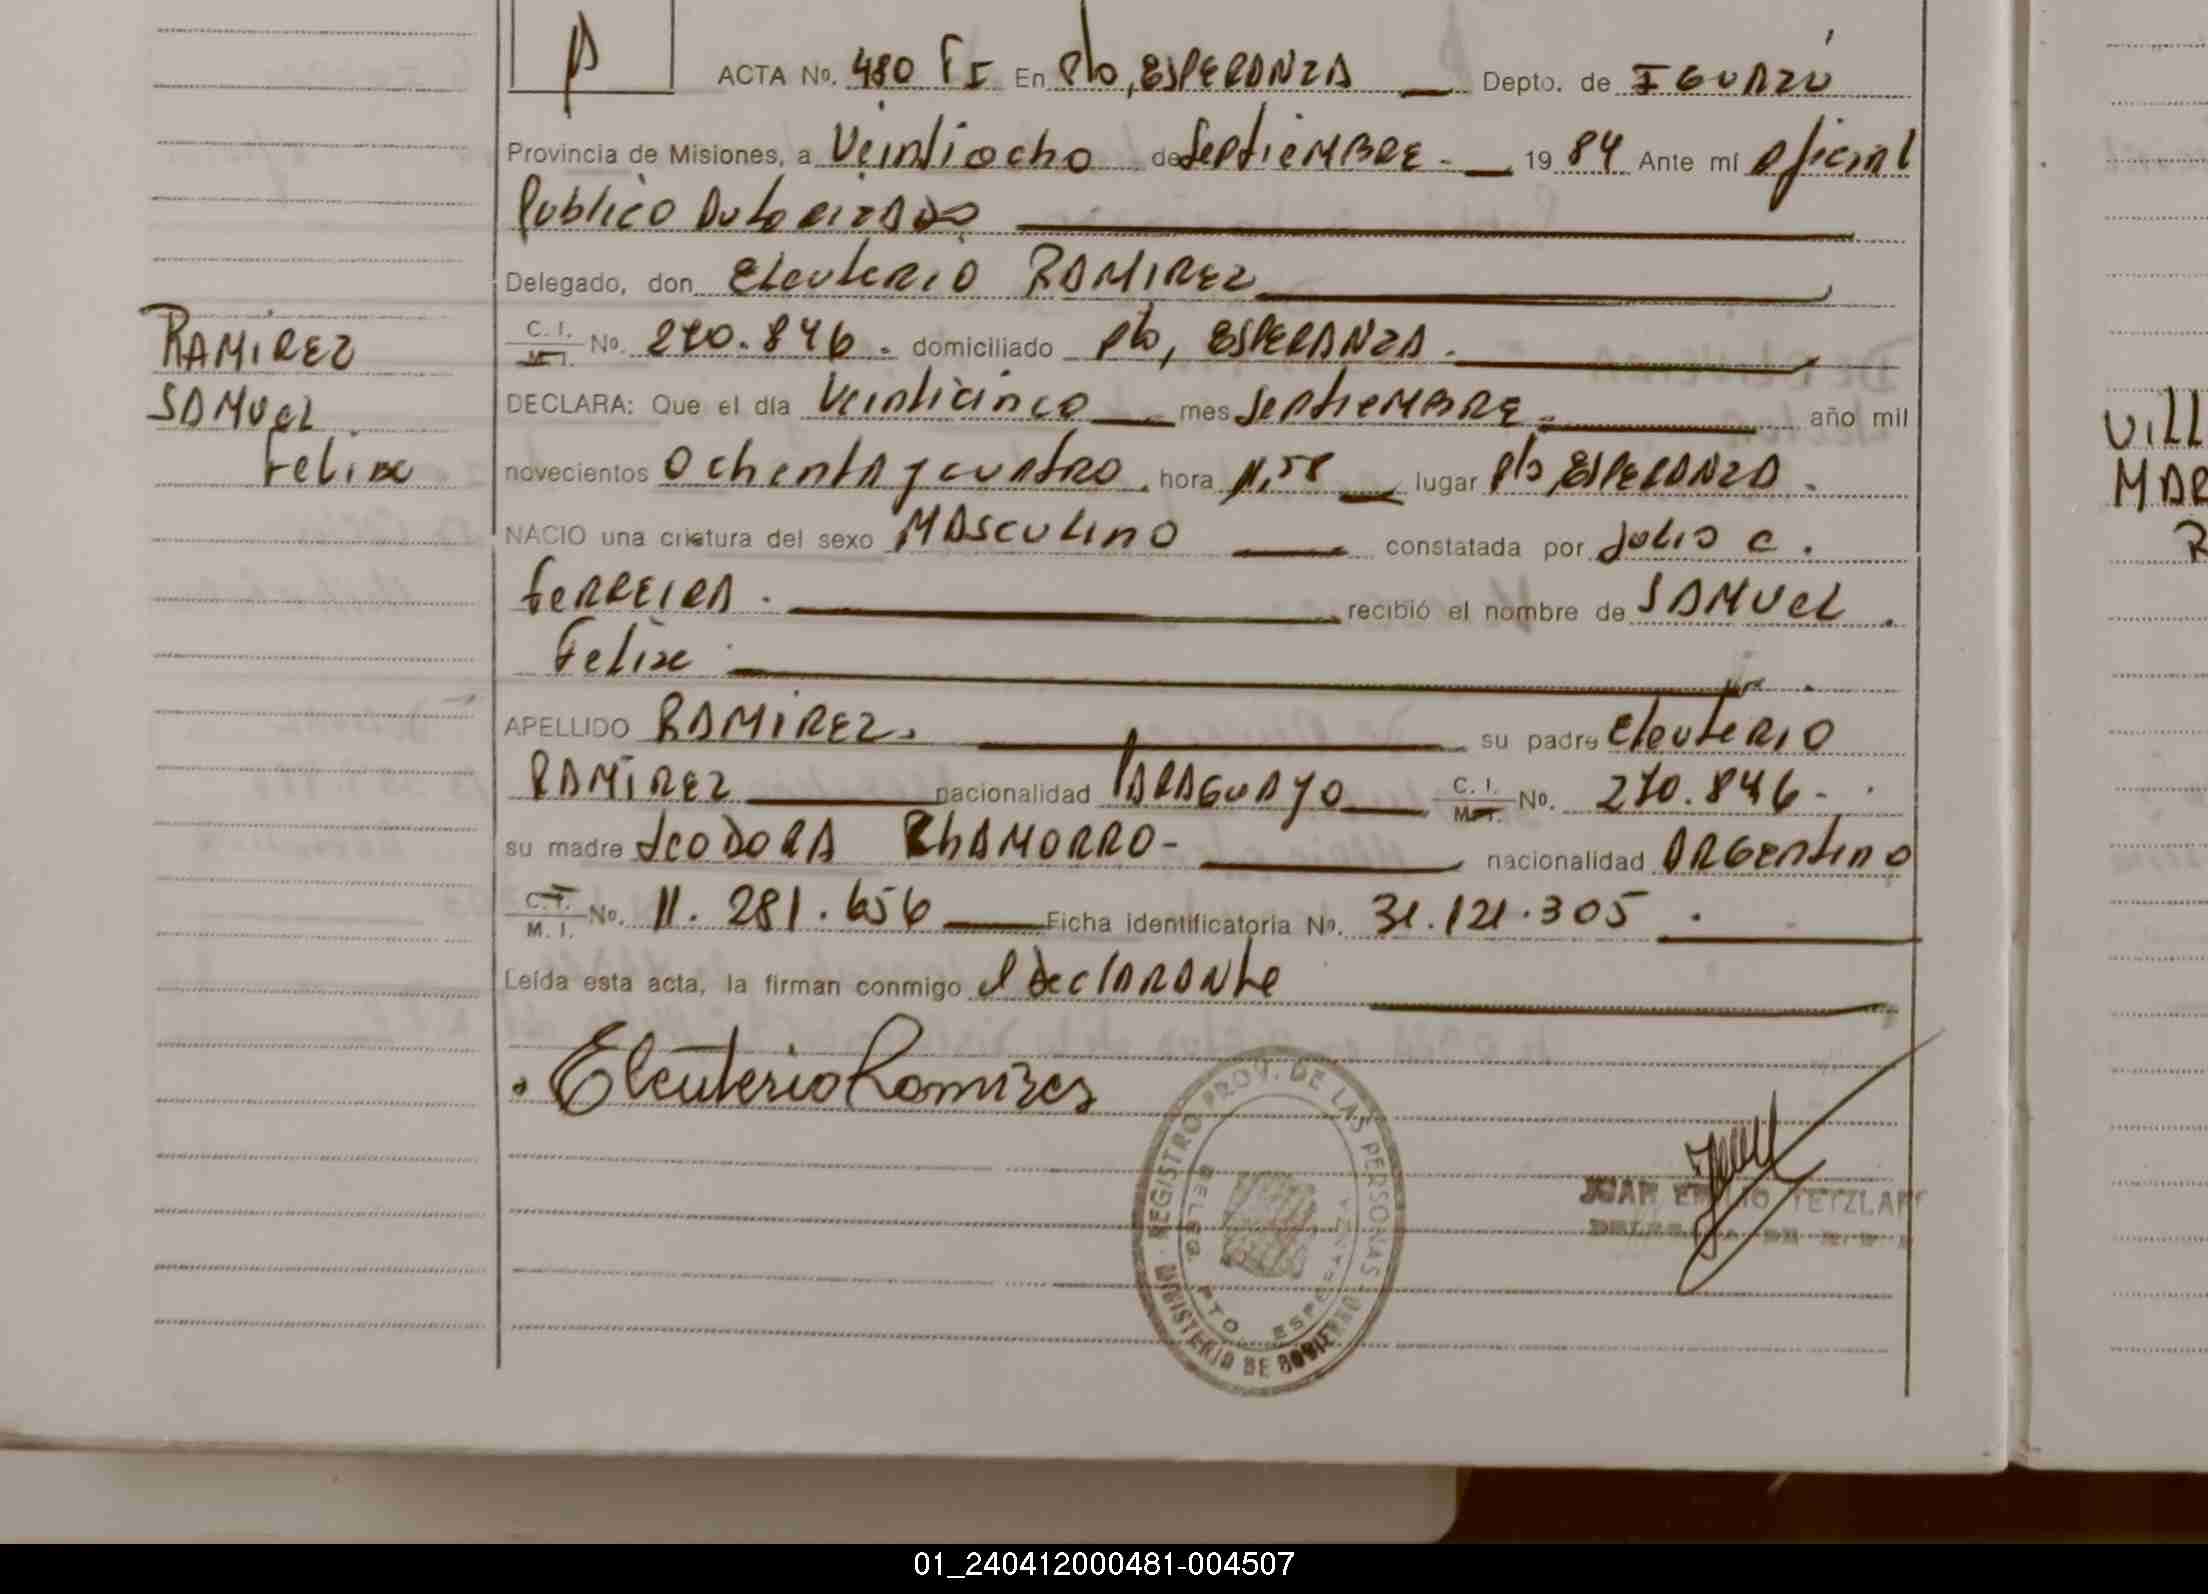 ACTA No. 480 FI En Pto, ESPERANZA Depto. de IGUAZÚ
Provincia de Misiones, a Veintiocho de Septiembre. 19 84 Ante mí oficial
Publico Autorizado
Delegado, don Eleuterio RAMIREZ
C. I. M. I. No. 270.846. domiciliado Pto, ESPERANZA.
DECLARA: Que el día Veinticinco mes Septiembre. año mil
novecientos Ochenta y cuatro. hora lugar Pto, ESPERANZA.
NACIO una criatura del sexo MASCULINO constatada por Julio C.
FERREIRA. recibió el nombre de SAMUEL
Felix
APELLIDO RAMIREZ. su padre Eleuterio
RAMIREZ nacionalidad PARAGUAYO C. I. M. I. No. 270.846-
su madre TEODORA CHAMORRO- nacionalidad ARGentino
C. I. M. I. No. 11.281.656 Ficha identificatoria No. 31.121.305.
Leída esta acta, la firman conmigo el declarante
Eleuterio Ramirez
RAMIREZ
SAMUEL
Felix
REGISTRO PROV. DE LAS PERSONAS
DELEG. PTO. ESPERANZA
MINISTERIO DE GOBIERNO
JUAN EMILIO TETZLAFF
VILL
MAR
R
01_240412000481-004507